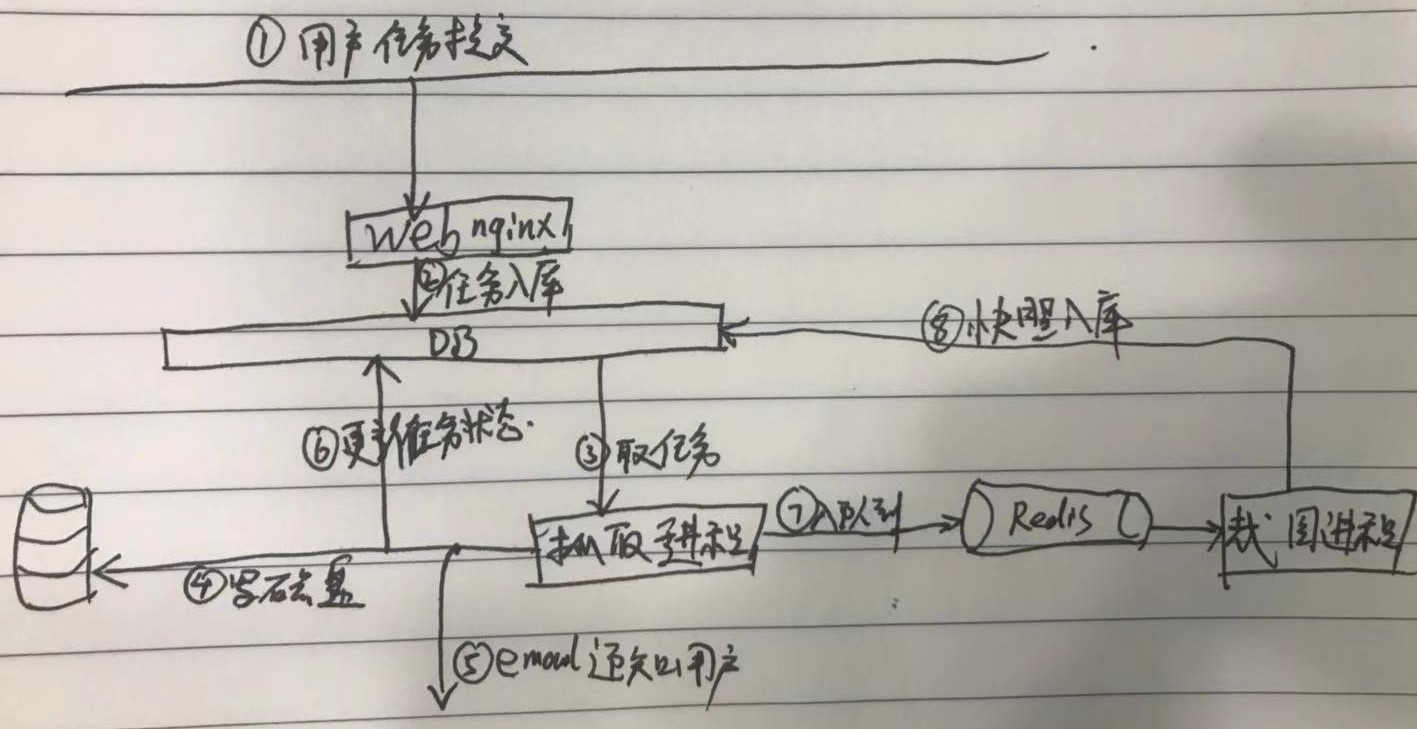 ①用户任务提交
Web nginx
②任务入库
DB
⑧快照入库
⑥更新任务状态.
③取任务
抓取进程
⑦入队列
Redis
截图进程
④写磁盘
⑤email通知用户